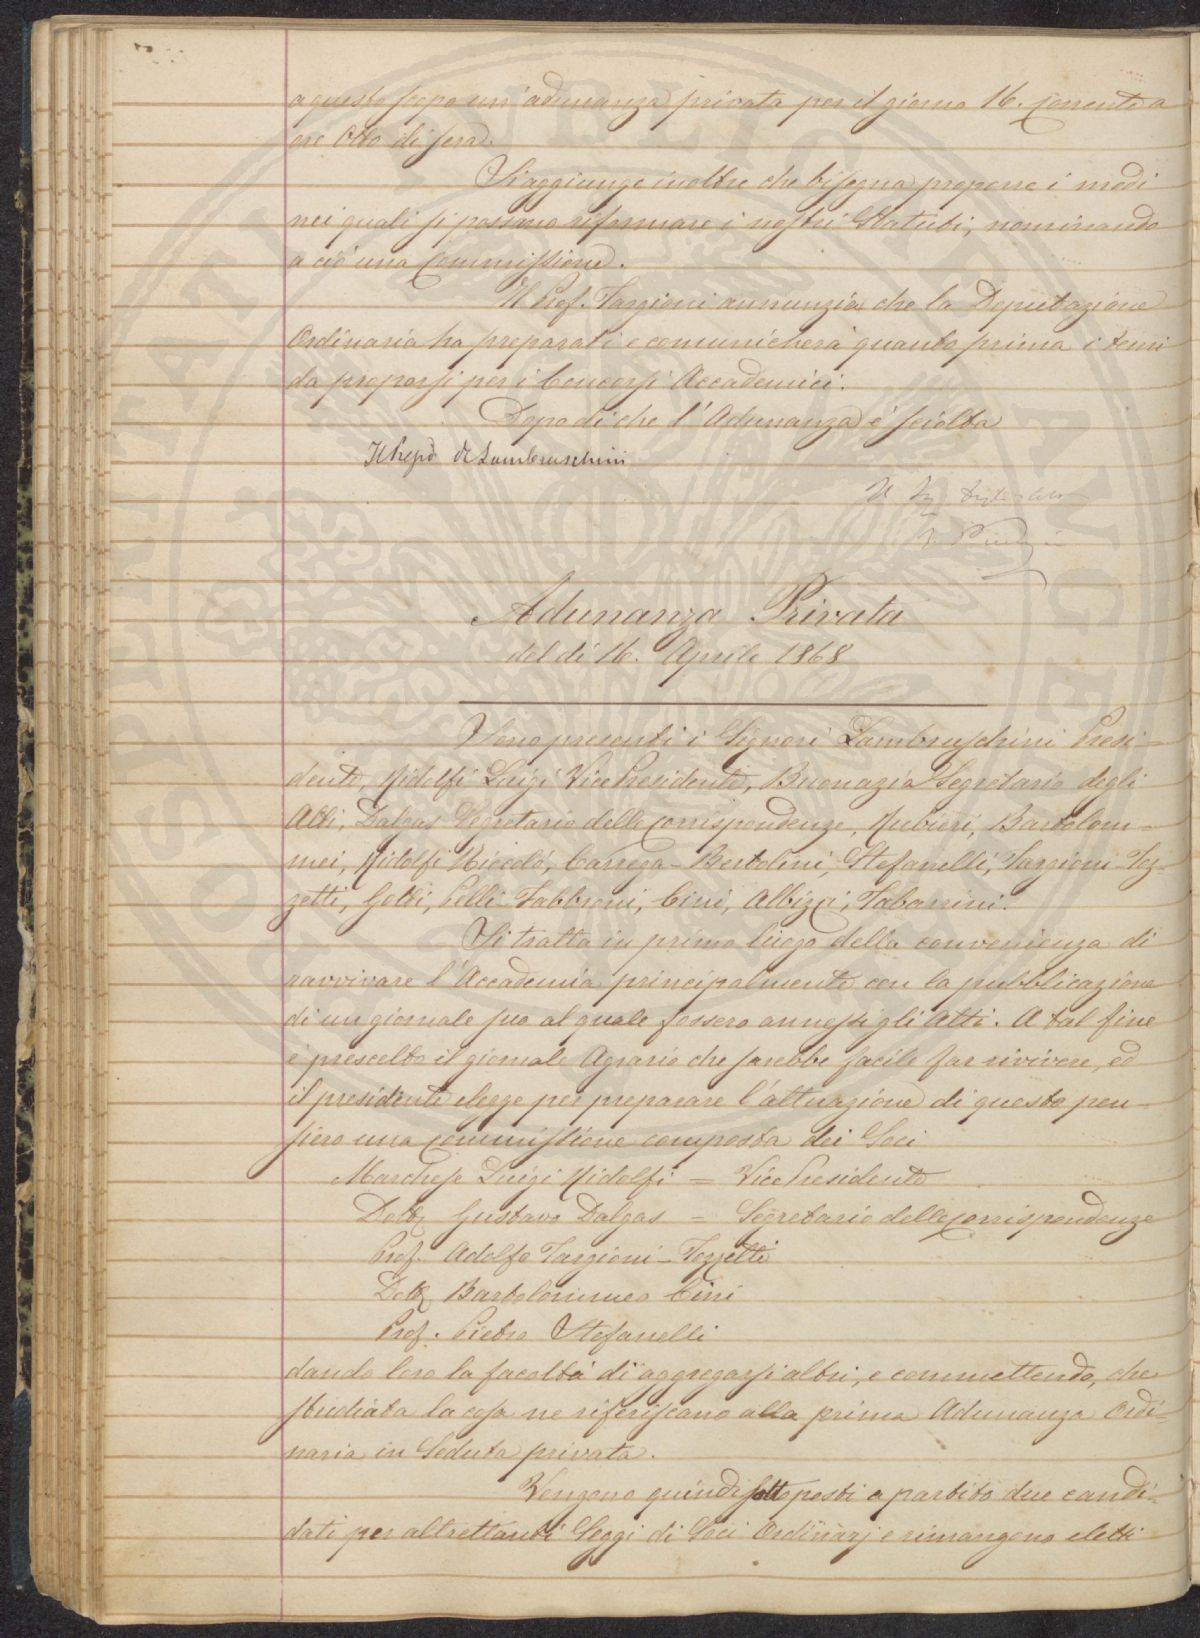 a questo scopo un'adunanza privata per il giorno 16. corrente a
ore Otto di sera.
Si aggiunge inoltre che bisogna proporre i modi
nei quali si possano riformare i nostri Statuti, nominando
a ciò una Commissione.
Il Prof. Targioni annunzia che la Deputazione
Ordinaria ha preparati e comunicherà quanto prima i temi
da proporsi per i Concorsi Accademici.
Dopo di che l'Adunanza è sciolta
Il Presid. R Lambruschini
Il
Adunanza Privata
del dì 16. Aprile 1868
Sono presenti i Signori Lambruschini Presi-
dente, Ridolfi Luigi Vice Presidente, Buonazia Segretario degli
Atti, Dalgas Segretario delle Corrispondenze, Rubieri, Bartolom-
mei, Ridolfi Niccolò, Carrega-Bertolini, Stefanelli, Targioni-Toz-
zetti, Gotti, Pelli-Fabbroni, Cini, Albizzi, Tabarrini.
Si tratta in primo luogo della convenienza di
ravvivare l'Accademia principalmente con la pubblicazione
di un giornale suo al quale fossero annessi gli Atti. A tal fine
è prescelto il giornale Agrario che sarebbe facile far rivivere, ed
il presidente elegge per preparare l'attuazione di questo pen-
siero una Commissione composta dei Soci
Marchese Luigi Ridolfi = Vice Presidente
Dott. Gustavo Dalgas = Segretario delle Corrispondenze
Prof. Adolfo Targioni-Tozzetti
Dott. Bartolommeo Cini
Prof. Pietro Stefanelli
dando loro la facoltà di aggregarsi altri, e commettendo, che
studiata la cosa ne riferiscano alla prima Adunanza Ordi-
naria in Seduta privata.
Vengono quindi sottoposti a partito due candi-
dati per altrettanti Seggi di Soci Ordinarj e rimangono eletti